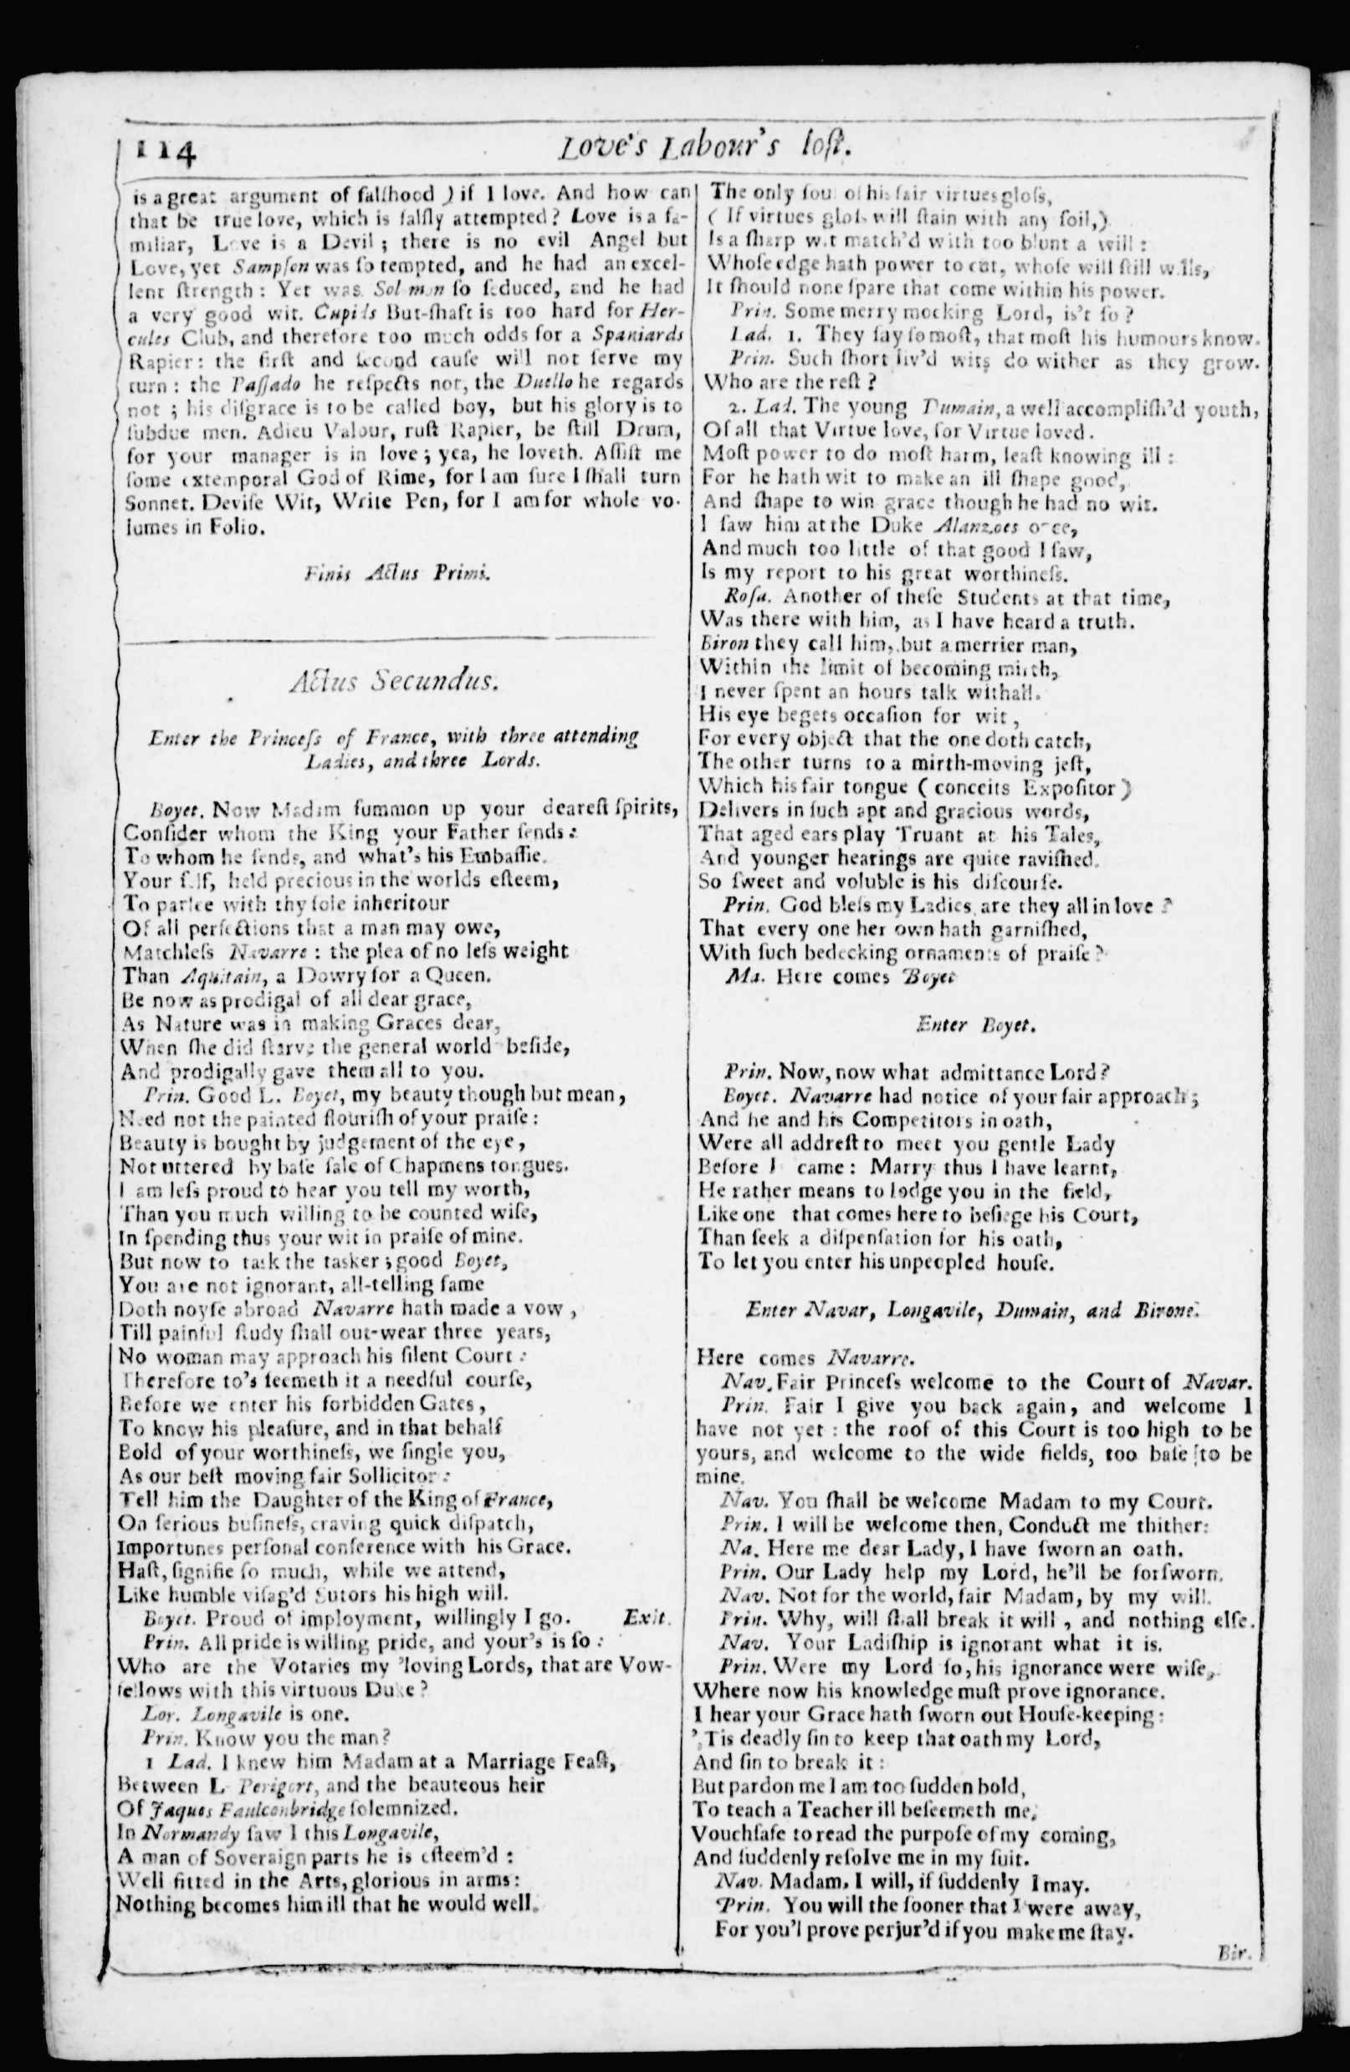 114
Love's Labour's loſt.
is a great argument of falſhood ) if I love. And how can
that be true love, which is falſly attempted? Love is a fa-
miliar, Love is a Devil; there is no evil Angel but
Love, yet Sampſon was ſo tempted, and he had an excel-
lent ſtrength: Yet was Solomon ſo ſeduced, and he had
a very good wit. Cupids But-ſhaft is too hard for Her-
cules Club, and therefore too much odds for a Spaniards
Rapier: the firſt and ſecond cauſe will not ſerve my
turn: the Paſſado he reſpects not, the Duello he regards
not; his diſgrace is to be called boy, but his glory is to
ſubdue men. Adieu Valour, ruſt Rapier, be ſtill Drum,
for your manager is in love; yea, he loveth. Aſſiſt me
ſome extemporal God of Rime, for I am ſure I ſhall turn
Sonnet. Deviſe Wit, Write Pen, for I am for whole vo-
lumes in Folio.
Finis Actus Primi.
Actus Secundus.
Enter the Princeſs of France, with three attending
Ladies, and three Lords.
Boyet. Now Madam ſummon up your deareſt ſpirits,
Conſider whom the King your Father ſends:
To whom he ſends, and what's his Embaſſie.
Your ſelf, held precious in the worlds eſteem,
To parlee with thy ſole inheritour
Of all perfections that a man may owe,
Matchleſs Navarre: the plea of no leſs weight
Than Aquitain, a Dowry for a Queen.
Be now as prodigal of all dear grace,
As Nature was in making Graces dear,
When ſhe did ſtarve the general world beſide,
And prodigally gave them all to you.
Prin. Good L. Boyet, my beauty though but mean,
Need not the painted flouriſh of your praiſe:
Beauty is bought by judgement of the eye,
Not uttered by baſe ſale of Chapmens tongues.
I am leſs proud to hear you tell my worth,
Than you much willing to be counted wiſe,
In ſpending thus your wit in praiſe of mine.
But now to task the tasker; good Boyet,
You are not ignorant, all-telling fame
Doth noyſe abroad Navarre hath made a vow,
Till painful ſtudy ſhall out-wear three years,
No woman may approach his ſilent Court:
Therefore to's ſeemeth it a needful courſe,
Before we enter his forbidden Gates,
To know his pleaſure, and in that behalf
Bold of your worthineſs, we ſingle you,
As our beſt moving fair Sollicitor:
Tell him the Daughter of the King of France,
On ſerious buſineſs, craving quick diſpatch,
Importunes perſonal conference with his Grace.
Haſt, ſignifie ſo much, while we attend,
Like humble viſag'd Sutors his high will.
Boyet. Proud of imployment, willingly I go. Exit.
Prin. All pride is willing pride, and your's is ſo:
Who are the Votaries my loving Lords, that are Vow-
fellows with this virtuous Duke?
Lor. Longavile is one.
Prin. Know you the man?
1 Lad. I knew him Madam at a Marriage Feaſt,
Between L. Perigort, and the beauteous heir
Of Jaques Faulconbridge ſolemnized.
In Normandy ſaw I this Longavile,
A man of Soveraign parts he is eſteem'd:
Well fitted in the Arts, glorious in arms:
Nothing becomes him ill that he would well.
The only ſoul of his fair virtues gloſs,
( If virtues gloſs will ſtain with any ſoil,)
Is a ſharp wit match'd with too blunt a will:
Whoſe edge hath power to cut, whoſe will ſtill wills,
It ſhould none ſpare that come within his power.
Prin. Some merry mocking Lord, is't ſo?
Lad. 1. They ſay ſo moſt, that moſt his humours know.
Prin. Such ſhort liv'd wits do wither as they grow.
Who are the reſt?
2. Lad. The young Dumain, a well accompliſh'd youth,
Of all that Virtue love, for Virtue loved.
Moſt power to do moſt harm, leaſt knowing ill:
For he hath wit to make an ill ſhape good,
And ſhape to win grace though he had no wit.
I ſaw him at the Duke Alanzoes once,
And much too little of that good I ſaw,
Is my report to his great worthineſs.
Roſa. Another of theſe Students at that time,
Was there with him, as I have heard a truth.
Biron they call him, but a merrier man,
Within the limit of becoming mirth,
I never ſpent an hours talk withall.
His eye begets occaſion for wit,
For every object that the one doth catch,
The other turns to a mirth-moving jeſt,
Which his fair tongue ( conceits Expoſitor )
Delivers in ſuch apt and gracious words,
That aged ears play Truant at his Tales,
And younger hearings are quite raviſhed.
So ſweet and voluble is his diſcourſe.
Prin. God bleſs my Ladies, are they all in love?
That every one her own hath garniſhed,
With ſuch bedecking ornaments of praiſe?
Ma. Here comes Boyet
Enter Boyet.
Prin. Now, now what admittance Lord?
Boyet. Navarre had notice of your fair approach;
And he and his Competitors in oath,
Were all addreſt to meet you gentle Lady
Before I came: Marry thus I have learnt,
He rather means to lodge you in the field,
Like one that comes here to beſiege his Court,
Than ſeek a diſpenſation for his oath,
To let you enter his unpeopled houſe.
Enter Navar, Longavile, Dumain, and Birone.
Here comes Navarre.
Nav. Fair Princeſs welcome to the Court of Navar.
Prin. Fair I give you back again, and welcome I
have not yet: the roof of this Court is too high to be
yours, and welcome to the wide fields, too baſe to be
mine.
Nav. You ſhall be welcome Madam to my Court.
Prin. I will be welcome then, Conduct me thither:
Na. Here me dear Lady, I have ſworn an oath.
Prin. Our Lady help my Lord, he'll be forſworn.
Nav. Not for the world, fair Madam, by my will.
Prin. Why, will ſhall break it will, and nothing elſe.
Nav. Your Ladiſhip is ignorant what it is.
Prin. Were my Lord ſo, his ignorance were wiſe,
Where now his knowledge muſt prove ignorance.
I hear your Grace hath ſworn out Houſe-keeping:
'Tis deadly ſin to keep that oath my Lord,
And ſin to break it:
But pardon me I am too ſudden bold,
To teach a Teacher ill beſeemeth me,
Vouchſafe to read the purpoſe of my coming,
And ſuddenly reſolve me in my ſuit.
Nav. Madam, I will, if ſuddenly I may.
Prin. You will the ſooner that I were away,
For you'l prove perjur'd if you make me ſtay.
Bir.